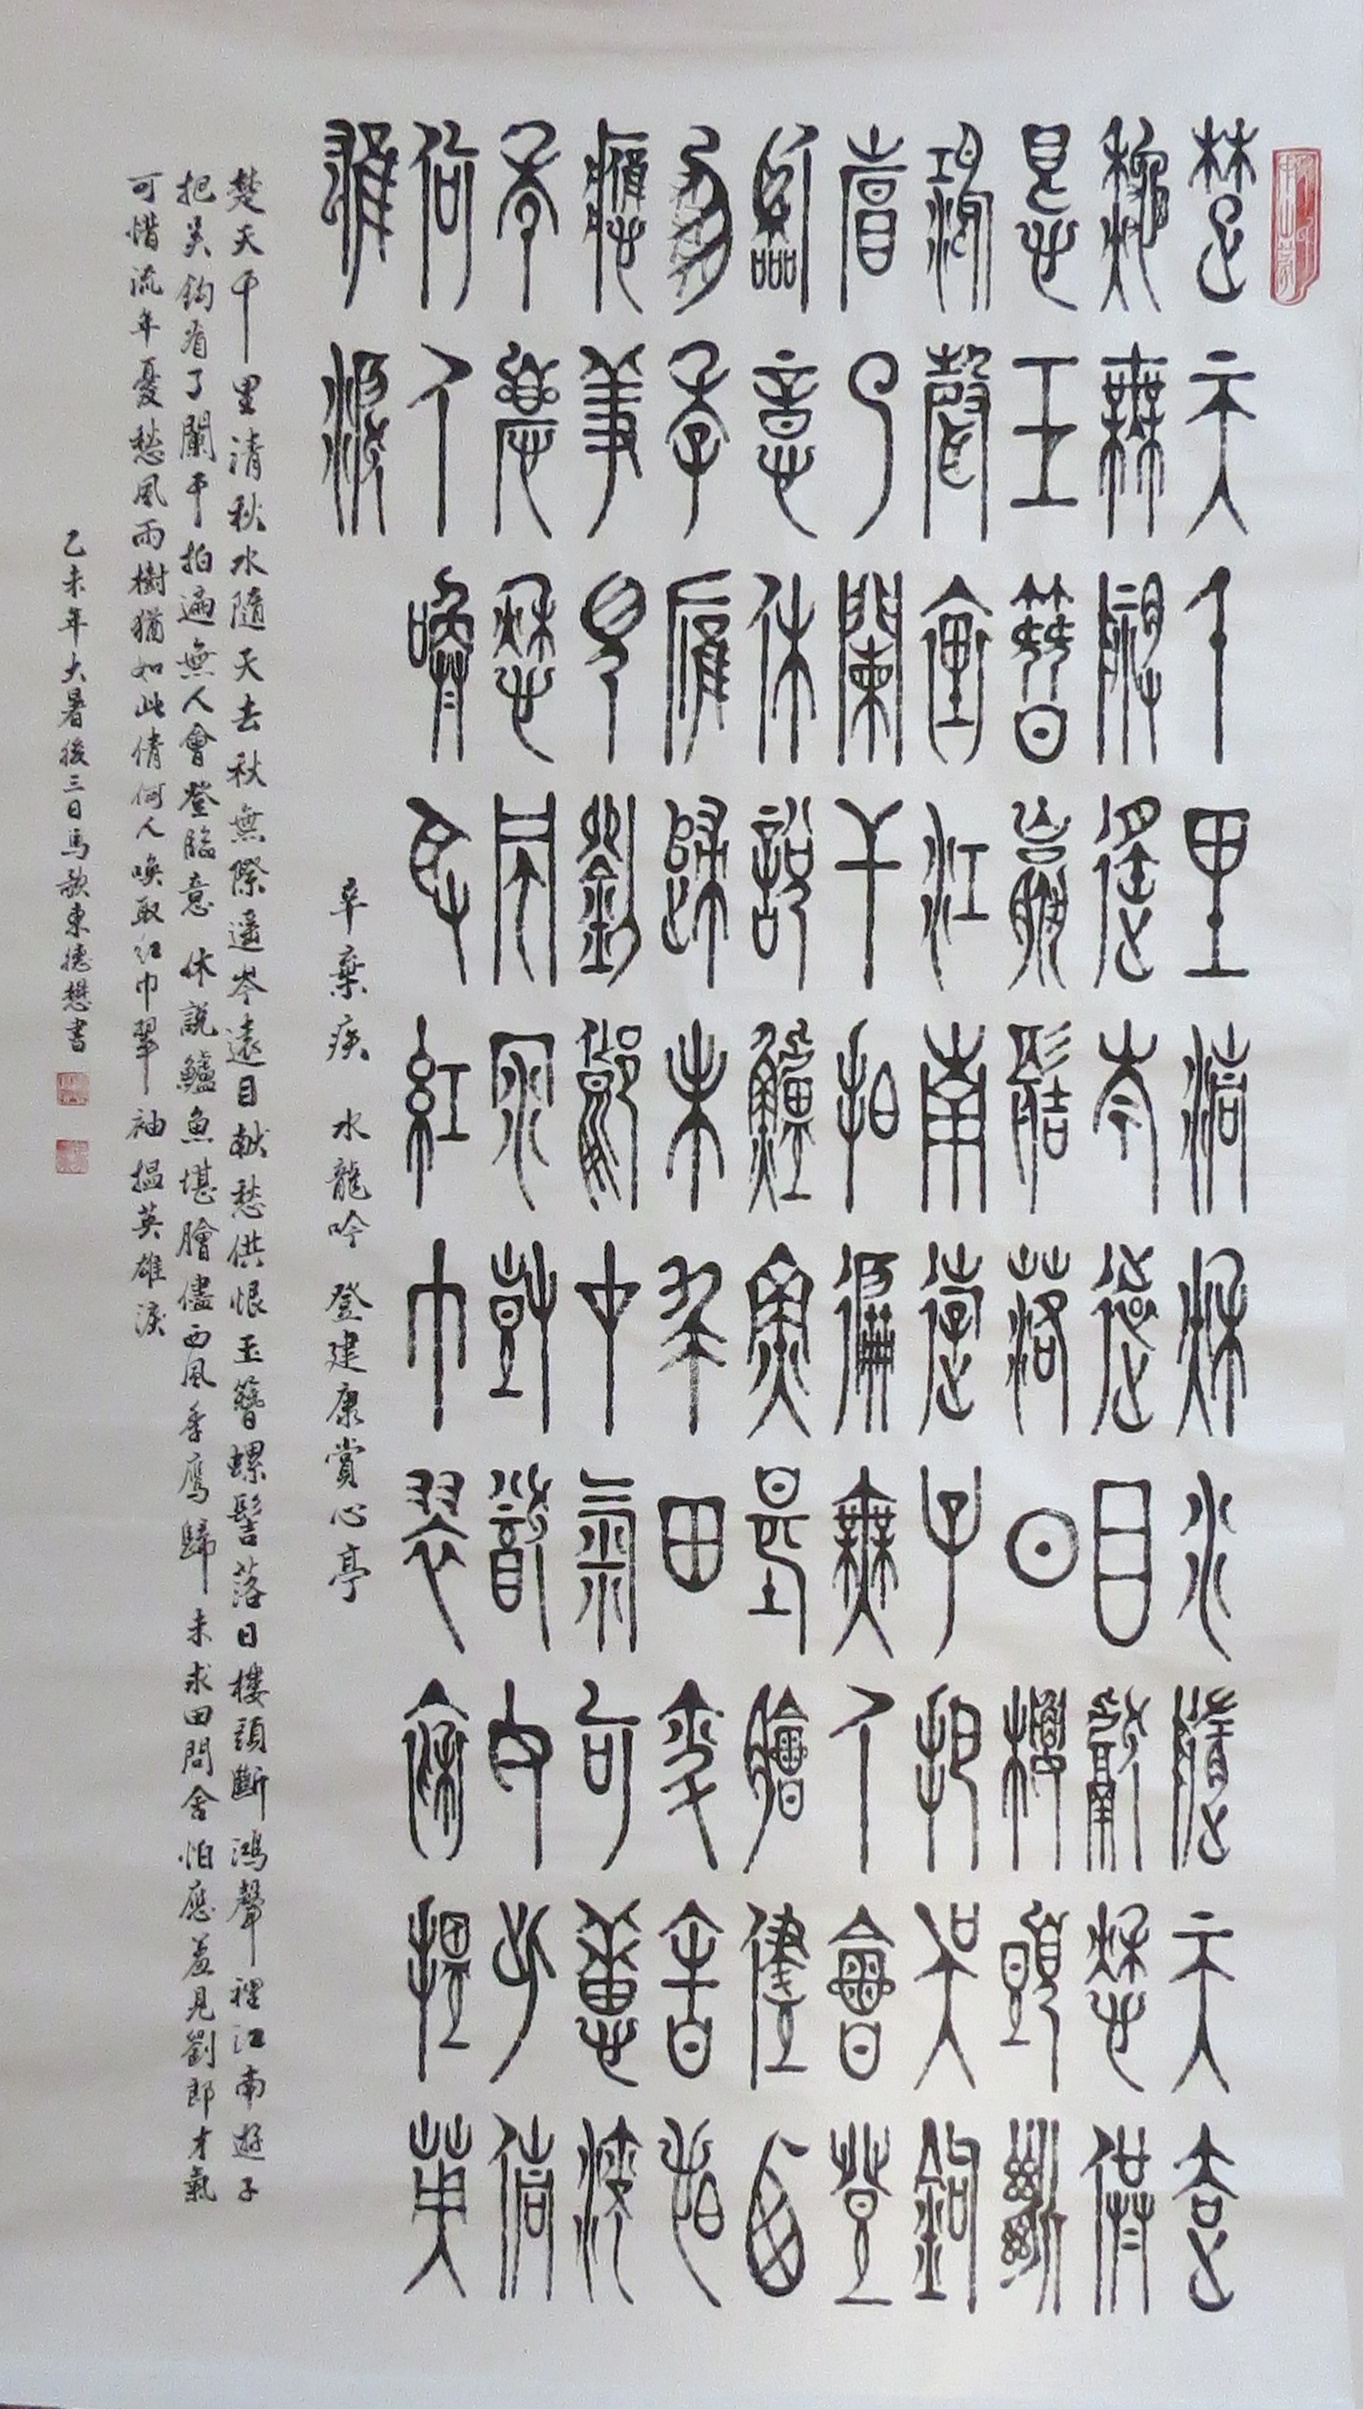 楚天千里清秋水隨天去
秋無際遙岑遠目獻愁供
恨玉簪螺髻落日樓頭斷
鴻聲裏江南遊子把吳鉤
看了闌干拍遍無人會登
臨意休說鱸魚堪膾儘西
風季鷹歸未求田問舍怕
應羞見劉郎才氣可惜流
年憂愁風雨樹猶如此倩
何人喚取紅巾翠袖揾英
雄淚
辛棄疾 水龍吟 登建康賞心亭
楚天千里清秋水隨天去秋無際遙岑遠目献愁供恨玉簪螺髻落日樓頭斷鴻聲裡江南遊子
把吴鈎看了闌干拍遍無人會登臨意休說鱸魚堪膾儘西風季鷹歸未求田問舍怕應羞見劉郎才氣
可惜流年憂愁風雨樹猶如此倩何人喚取紅巾翠袖揾英雄淚
乙未年大暑後三日馬歌東德懋書